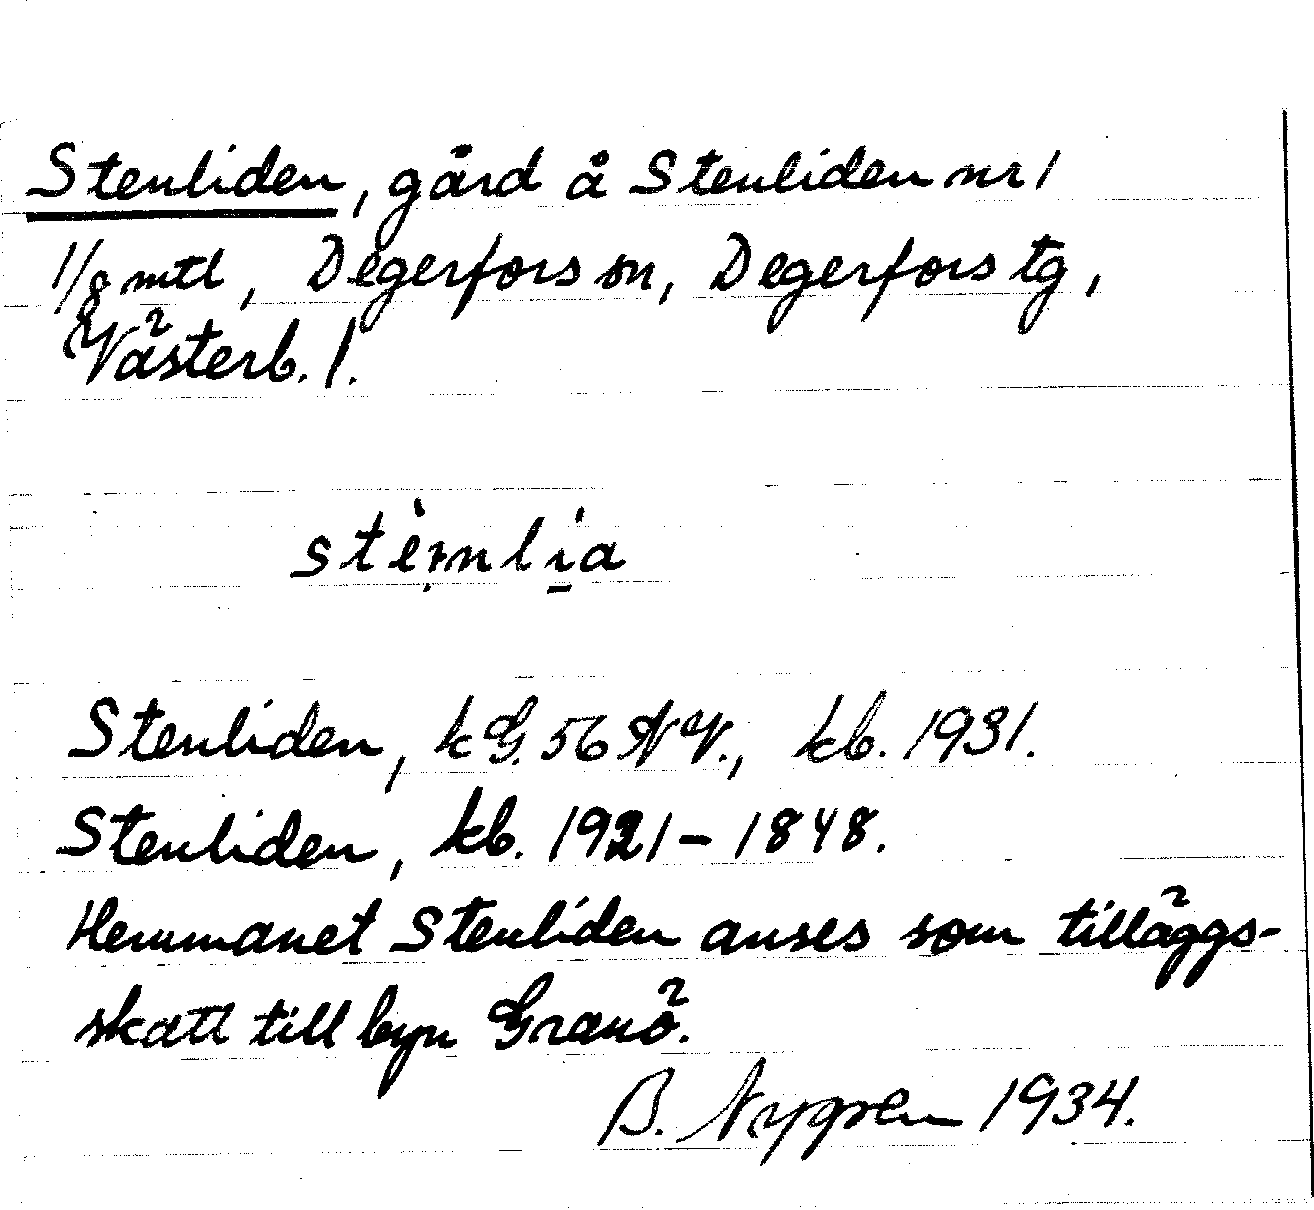 Stenliden, gård å Stenliden nr 1
1/8 mtl, Degerfors sn, Degerfors tg,
Västerb. l.
Stenliden, k G. 56 NV., kb. 1931.
Stenliden, kb. 1921 – 1848.
Hemmanet Stenliden anses som tilläggs-
skatt till byn Granö.
B. Nygren 1934.